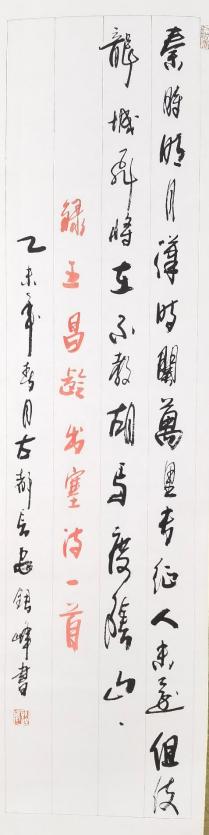 秦時明月漢時關萬里長征人未還但使
龍城飛將在不教胡馬度陰山
錄王昌齡出塞詩一首
乙未年春月古都長安峰書